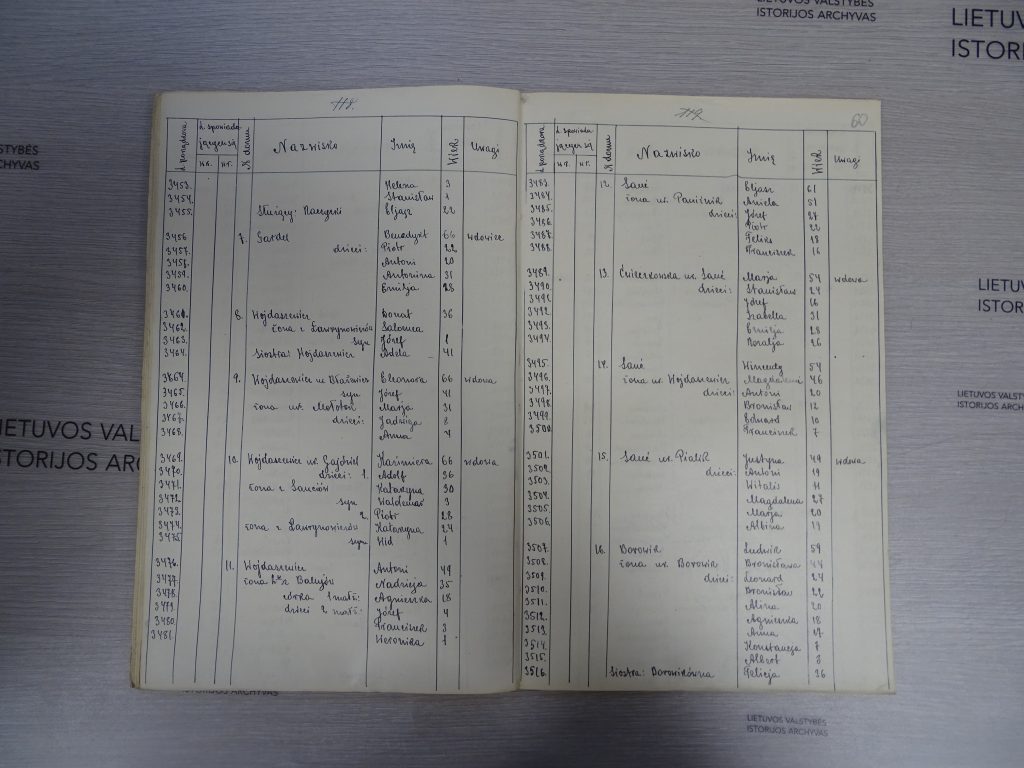 LIETUVOS VALSTYBĖS
ISTORIJOS ARCHYVAS
118.
L. porządkowa
L. spowiada
jących się
Nr domu
Nazwisko
Imię
Wiek
Uwagi
3453. Helena 3
3454. Stanisław 1
3455. Służący: Raczycki Eljasz 22
3456 7. Sardel Benedykt 66 wdowiec
3457. dzieci: Piotr 22
3458. Antoni 20
3459. Antonina 31
3460. Emilja 28
3461. 8. Wojdaszewicz Donat 36
3462. żona z Ławrynowiczów Salomea
3463. syn Józef 1
3464. siostra: Wojdaszewicz Adela 41
3464. 9. Wojdaszewicz Eleonora 66 wdowa
3465. syn Józef 41
3466. żona Marja 31
3467. dzieci: Jadwiga 8
3468. Anna 4
3469. 10. Wojdaszewicz ur. Kazimiera 66 wdowa
3470. dzieci: 1. Adolf 36
3471. żona z Sanciów Katarzyna 30
3472. syn Waldemar 3
3473. 2. Piotr 28
3474. żona z Ławrynowiczów Katarzyna 24
3475. syn Wid 1
3476. 11. Wojdaszewicz Antoni 49
3477. żona 2° z Balujów Nadzieja 35
3478. córka 1 małż: Agnieszka 18
3479. dzieci 2 małż: Józef 4
3480. Franciszek 3
3481. Weronika 1
119.
60
L. porządkowa
L. spowiada
jących się
Nr domu
Nazwisko
Imię
Wiek
Uwagi
3483. 12. Sanć Eljasz 61
3484. żona ur. Aniela 51
3485. dzieci: Józef 27
3486. Piotr 22
3487. Feliks 18
3488. Franciszek 16
3489. 13. Ćwieczkowska ur. Sanć Marja 54 wdowa
3490. dzieci: Stanisław 24
3491. Józef 16
3492. Izabella 31
3493. Emilja 28
3494. Rozalja 26
3495. 14. Sanć Wincenty 54
3496. żona ur. Wojdaszewicz Magdalena 46
3497. dzieci: Antoni 20
3498. Bronisław 12
3499. Edward 10
3500. Franciszek 7
3501. 15. Sanć ur. Piatik Justyna 49 wdowa
3502. dzieci: Antoni 19
3503. Witalis 11
3504. Magdalena 27
3505. Marja 20
3506. Albina 17
3507. 16. Borowik Ludwik 59
3508. żona ur. Borowik Bronisława 44
3509. dzieci: Leonard 24
3510. Bronisław 22
3511. Alina 20
3512. Agnieszka 18
3513. Anna 17
3514. Konstancja 7
3515. Albert 3
3516. siostra: Borowikówna Felicja 36
LIETUVOS VALSTYBĖS
ISTORIJOS ARCHYVAS